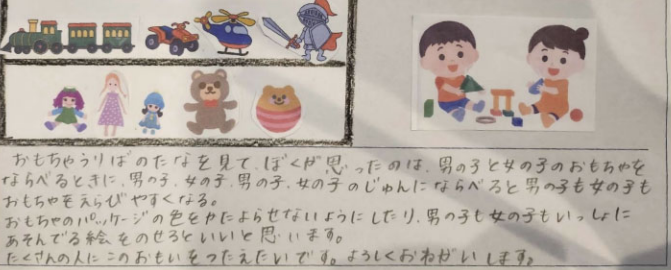 おもちゃうりばのたなを見て、ぼくが思ったのは、男の子と女の子のおもちゃを
ならべるときに、男の子、女の子、男の子、女の子のじゅんにならべると男の子も女の子も
おもちゃをえらびやすくなる。
おもちゃのパッケージの色をかたよらせないようにしたり、男の子も女の子もいっしょに
あそんでる絵をのせるといいと思います。
たくさんの人にこのおもいをつたえたいです。よろしくおねがいします。